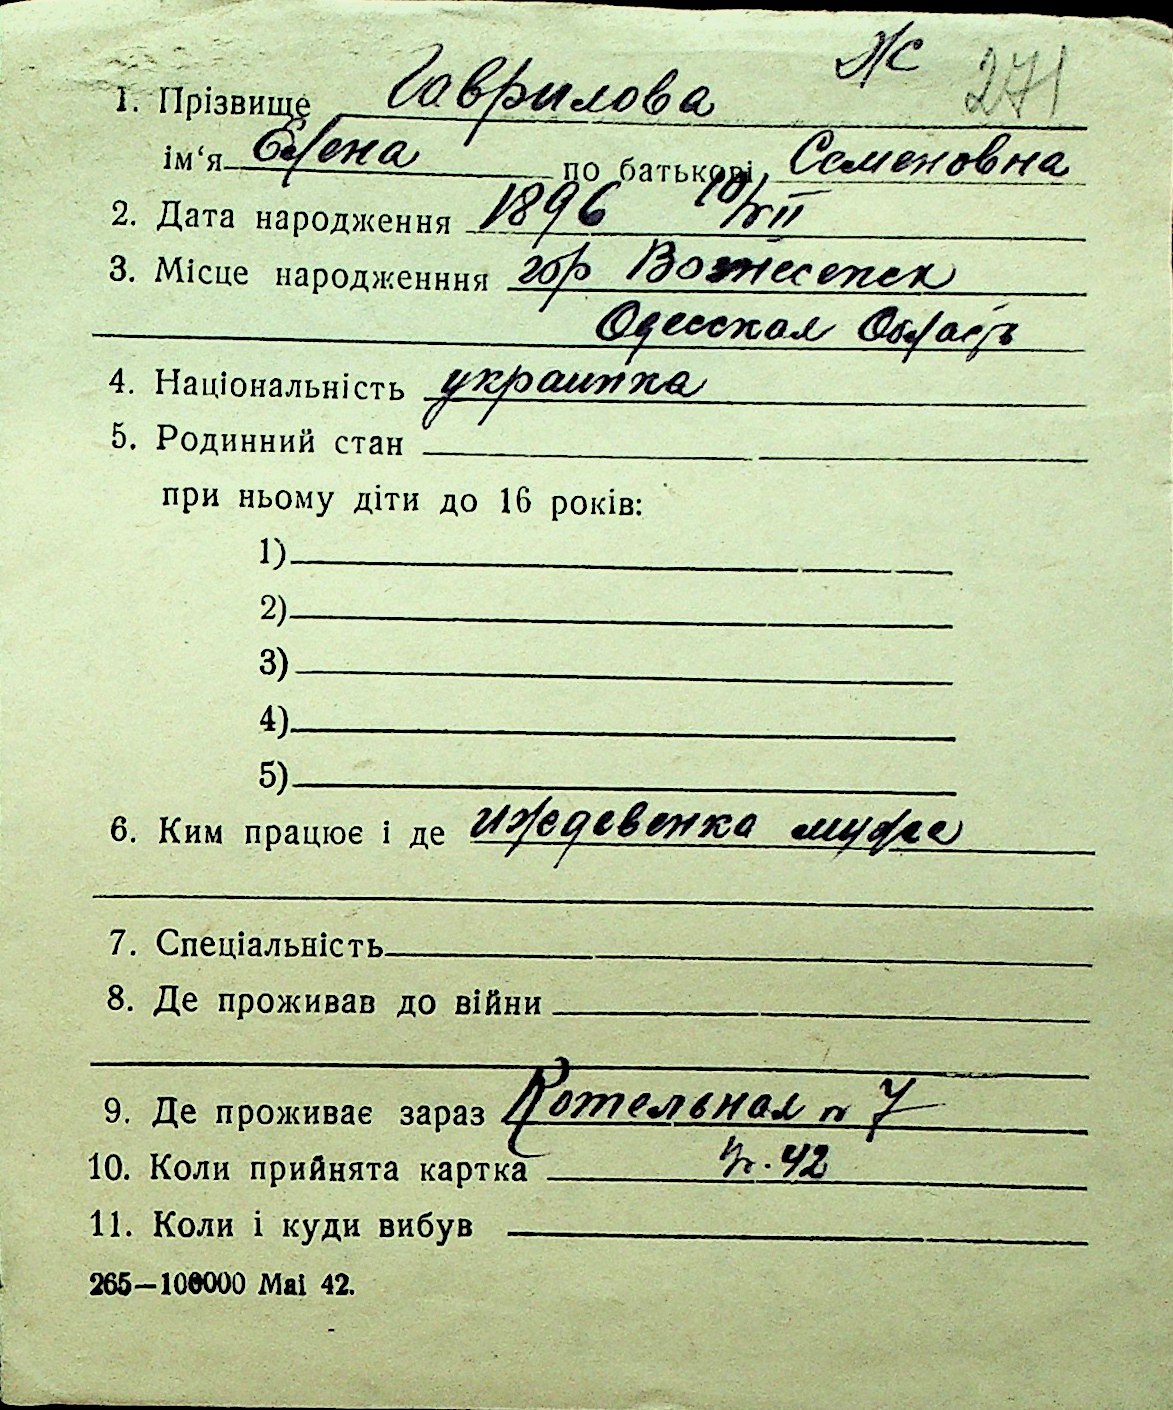 Ж 271
1. Прізвище Гаврилова
ім‘я Елена по батькові Семеновна
2. Дата народження 1896 10/VII
3. Місце народженння гор Вознесенск
Одесская Область
4. Національність украинка
5. Родинний стан
при ньому діти до 16 років:
1)
2)
3)
4)
5)
6. Ким працює і де иждевенка мужа
7. Спеціальність
8. Де проживав до війни
9. Де проживає зараз Котельная 7
10. Коли прийнята картка 42
11. Коли і куди вибув
265—100000 Mai 42.